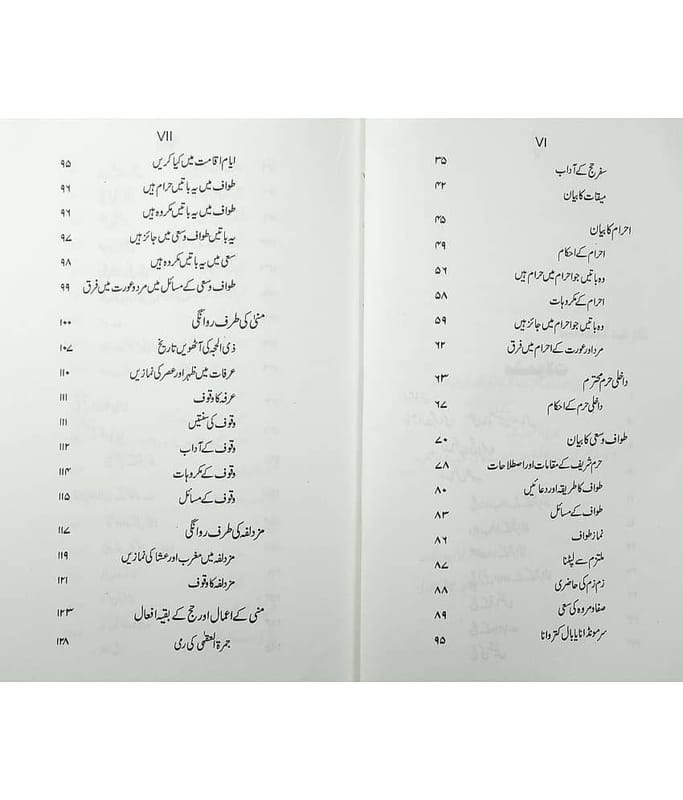 VI
سفر حج کے آداب ۳۵
میقات کا بیان ۴۲
احرام کا بیان ۴۵
احرام کے احکام ۴۹
وہ باتیں جو احرام میں حرام ہیں ۵۶
احرام کے مکروہات ۵۸
وہ باتیں جو احرام میں جائز ہیں ۵۹
مرد اور عورت کے احرام میں فرق ۶۲
داخلی حرم محترم ۶۳
داخلی حرم کے احکام ۶۷
طواف و سعی کا بیان ۷۰
حرم شریف کے مقامات اور اصطلاحات ۷۸
طواف کا طریقہ اور دعائیں ۸۰
طواف کے مسائل ۸۳
نماز طواف ۸۶
ملتزم سے لپٹنا ۸۷
زم زم کی حاضری ۸۸
صفا و مروہ کی سعی ۸۹
سر مونڈانا یا بال کتروانا ۹۵
VII
ایام اقامت میں کیا کریں ۹۵
طواف میں یہ باتیں حرام ہیں ۹۶
طواف میں یہ باتیں مکروہ ہیں ۹۶
یہ باتیں طواف و سعی میں جائز ہیں ۹۷
سعی میں یہ باتیں مکروہ ہیں ۹۸
طواف و سعی کے مسائل میں مرد و عورت میں فرق ۹۹
منیٰ کی طرف روانگی ۱۰۰
ذی الحجہ کی آٹھویں تاریخ ۱۰۷
عرفات میں ظہر اور عصر کی نمازیں ۱۱۰
عرفہ کا وقوف ۱۱۱
وقوف کی سنتیں ۱۱۱
وقوف کے آداب ۱۱۲
وقوف کے مکروہات ۱۱۴
وقوف کے مسائل ۱۱۵
مزدلفہ کی طرف روانگی ۱۱۷
مزدلفہ میں مغرب اور عشا کی نمازیں ۱۱۹
مزدلفہ کا وقوف ۱۲۱
منیٰ کے اعمال اور حج کے بقیہ افعال ۱۲۳
جمرۃ العقبیٰ کی رمی ۱۲۸